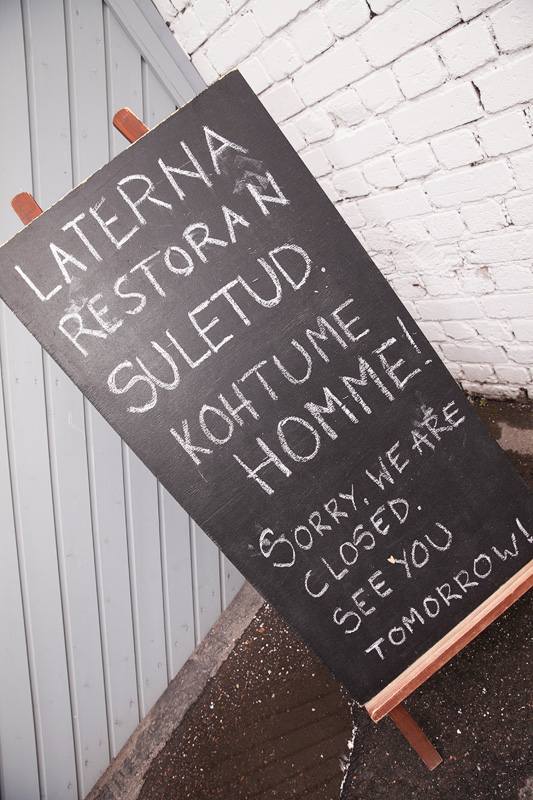 LATERNA
RESTORAN
SULETUD.
KOHTUME
HOMME!
SORRY, WE ARE
CLOSED.
SEE YOU
TOMORROW!